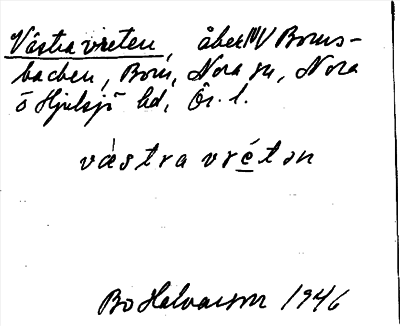 Västra vreten, åker NV Borns-
backen, Born, Nora sn, Nora
o Hjulsjö hd, Ör. l.
västra vretən
Bo Halvarson 1946